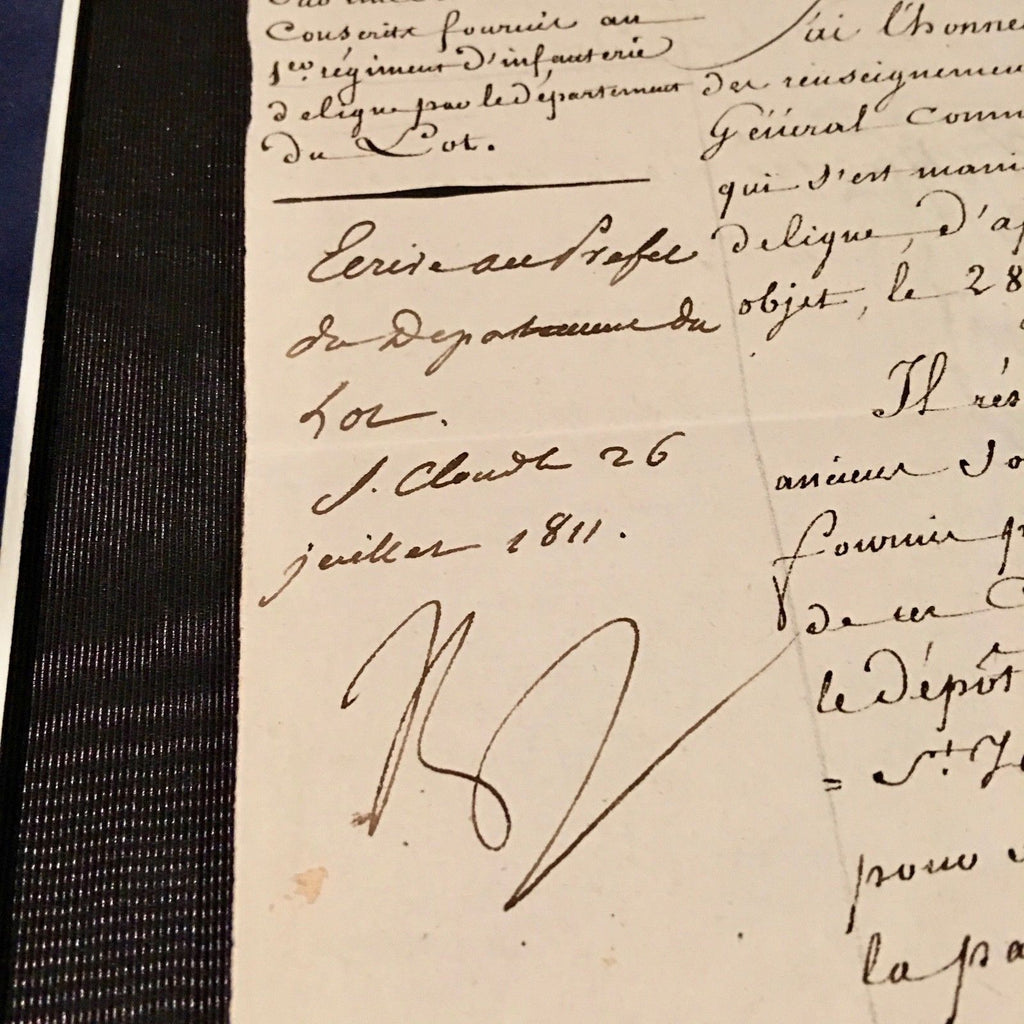 Conscrits fournis au
1er régiment d'infanterie
de ligne par le département
du Lot.
Ecrire au Prefet
du Departement du
Lot.
S. Cloud le 26
juillet 1811.
J'ai l'honne
des renseignemen
Général Comm
qui s'est mani
de ligne, d'ap
objet, le 28
Il rés
anciens So
fournis p
de ses C
le dépôt
= St. J
pour
la pa